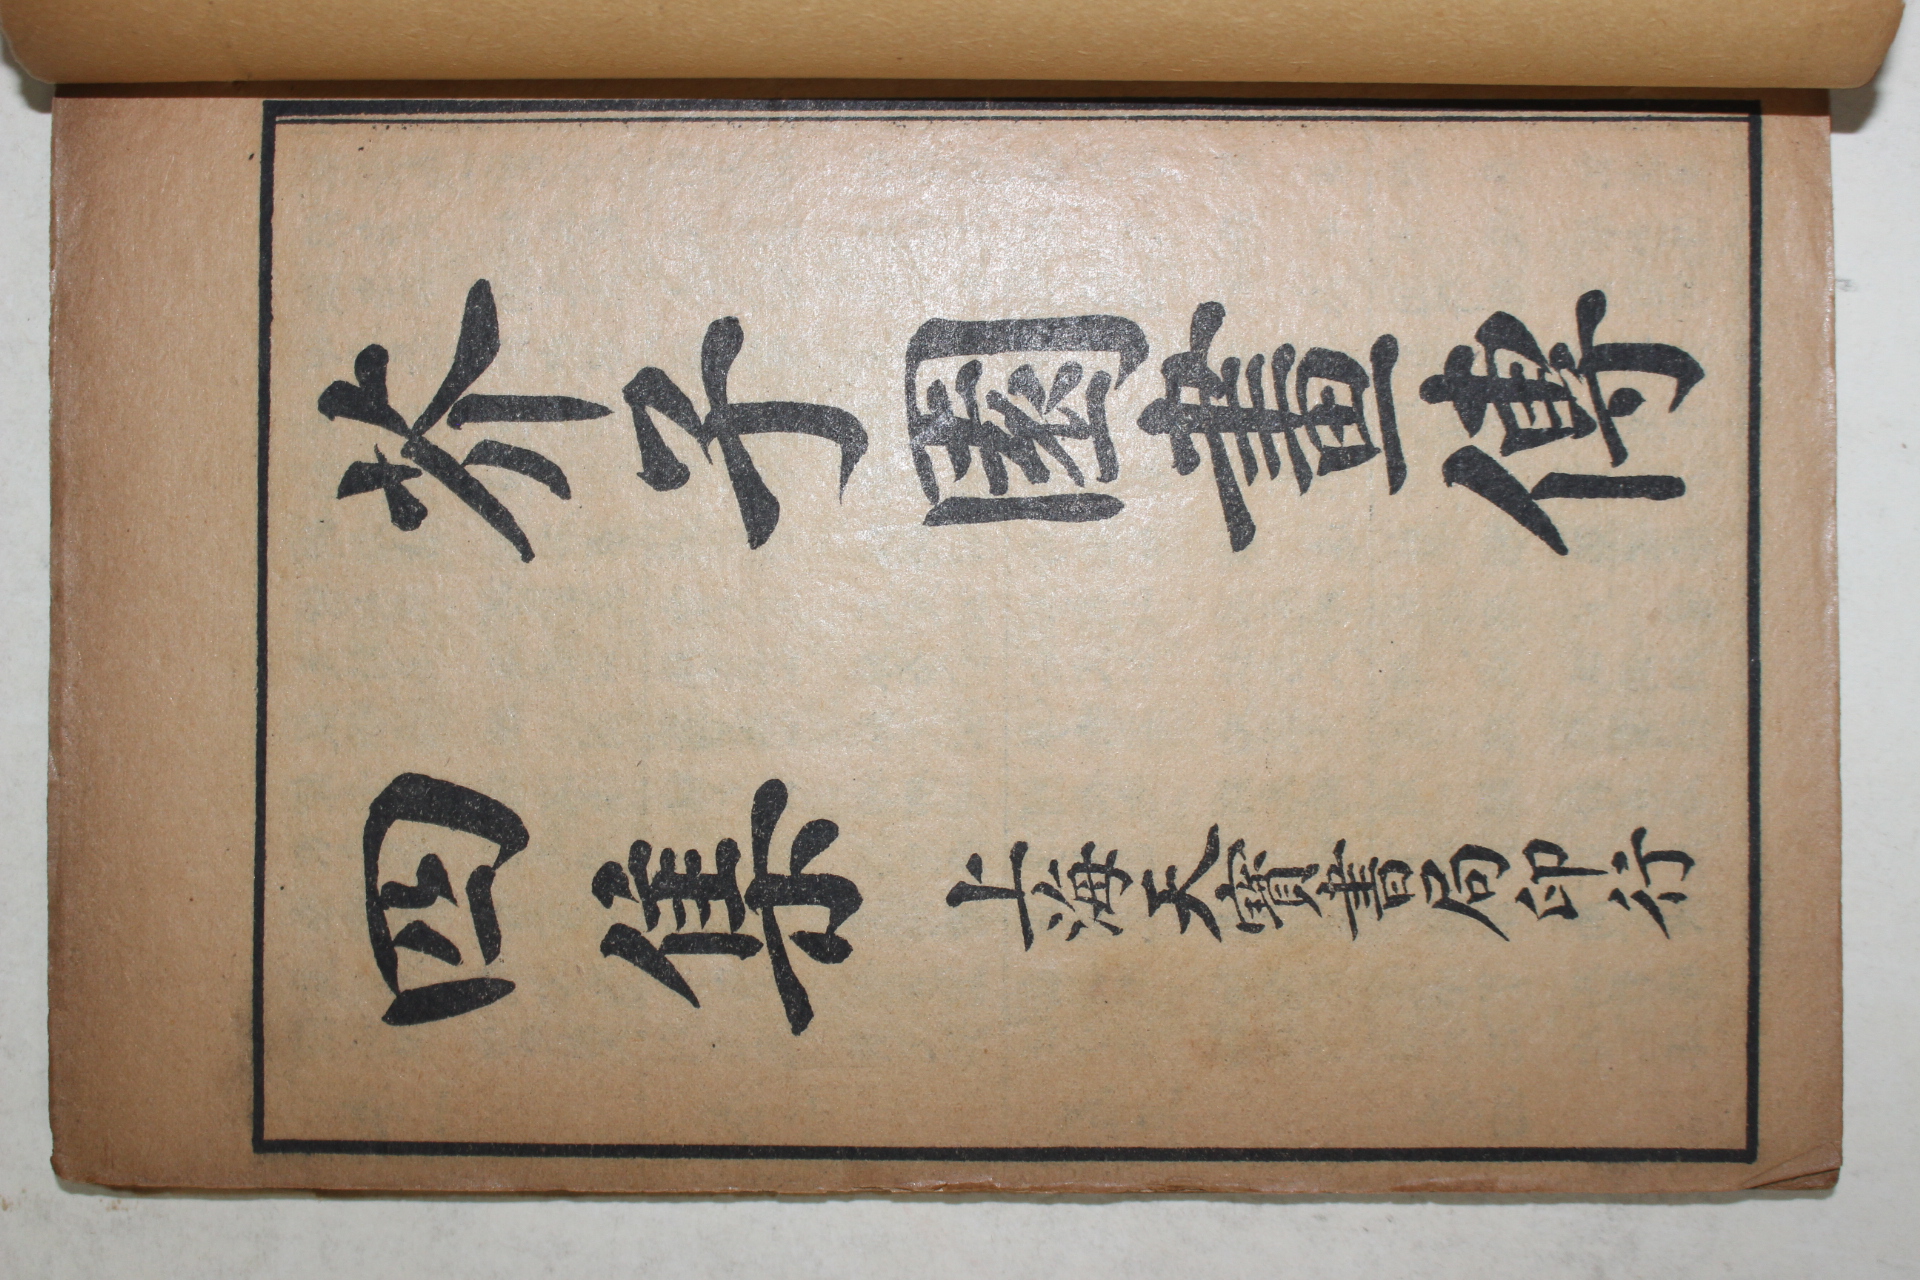 芥子園畫傳
四集
上海天寶書局印行